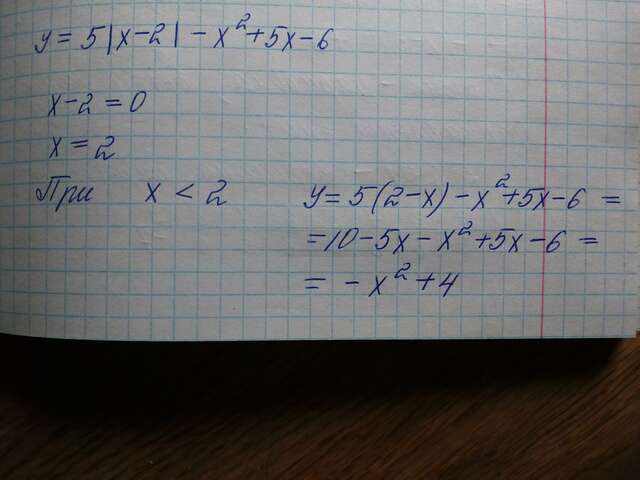 y = 5|x-2| - x² + 5x - 6
x - 2 = 0
x = 2
При x < 2 y = 5(2-x) - x² + 5x - 6 =
= 10 - 5x - x² + 5x - 6 =
= - x² + 4